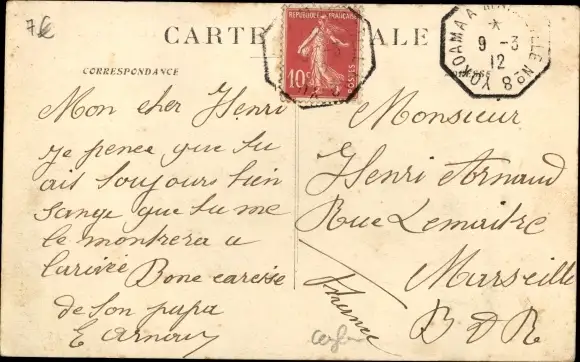 7€
CARTE POSTALE
REPUBLIQUE FRANÇAISE
10c
POSTES
YOKOHAMA A MARSEILLE N°8
*
9 - 3
12
CORRESPONDANCE
Mon cher Henri
je pence que tu
ais toujours bien
sange que tu me
le montrera a
larivée Bone caresse
de ton papa
E Arnaud
Monsieur
Henri Arnaud
Rue Lemaitre
Marseille
B D R
France